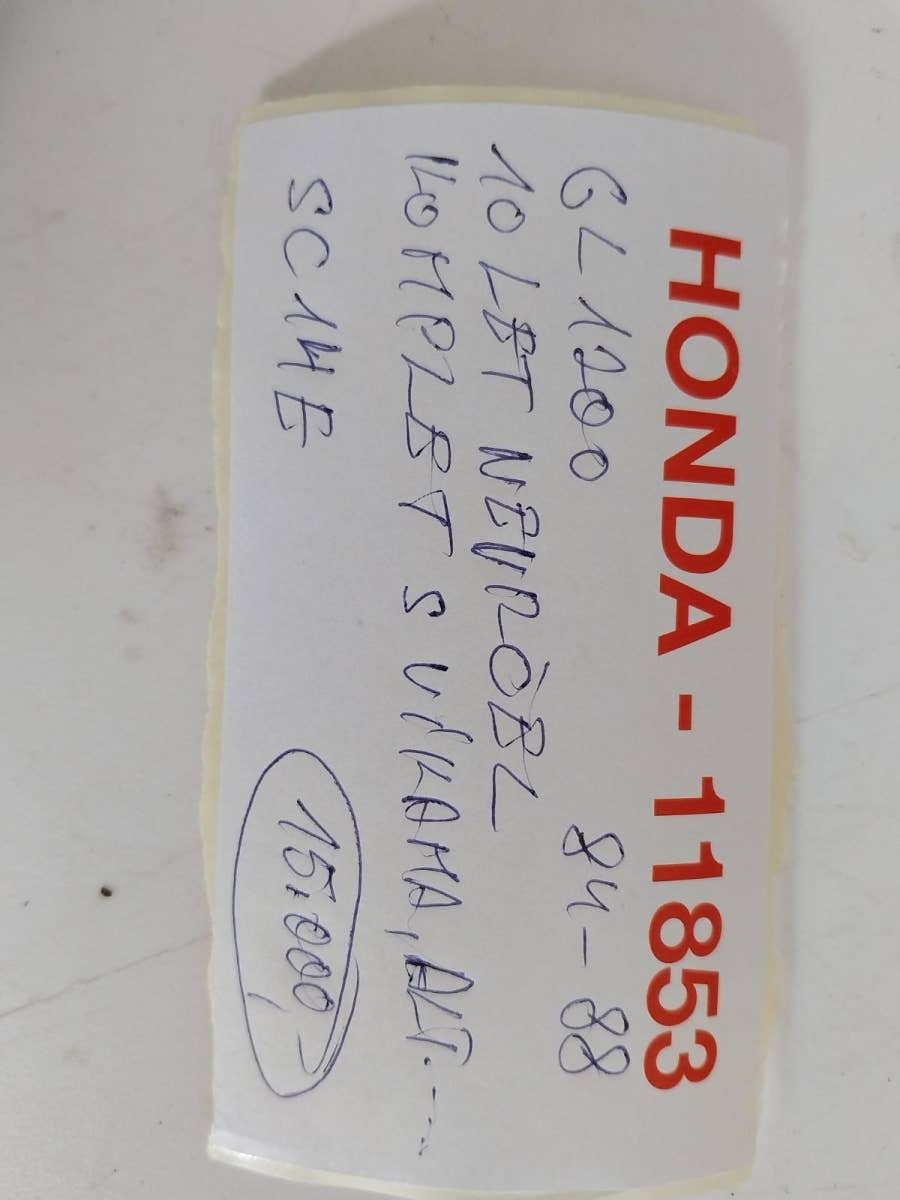 HONDA - 11853
GL 1200 84-88
10 LET NEVRÒBL
KOMPLET S VÍKAMA, ALT. ---
SC14E 15.000,-